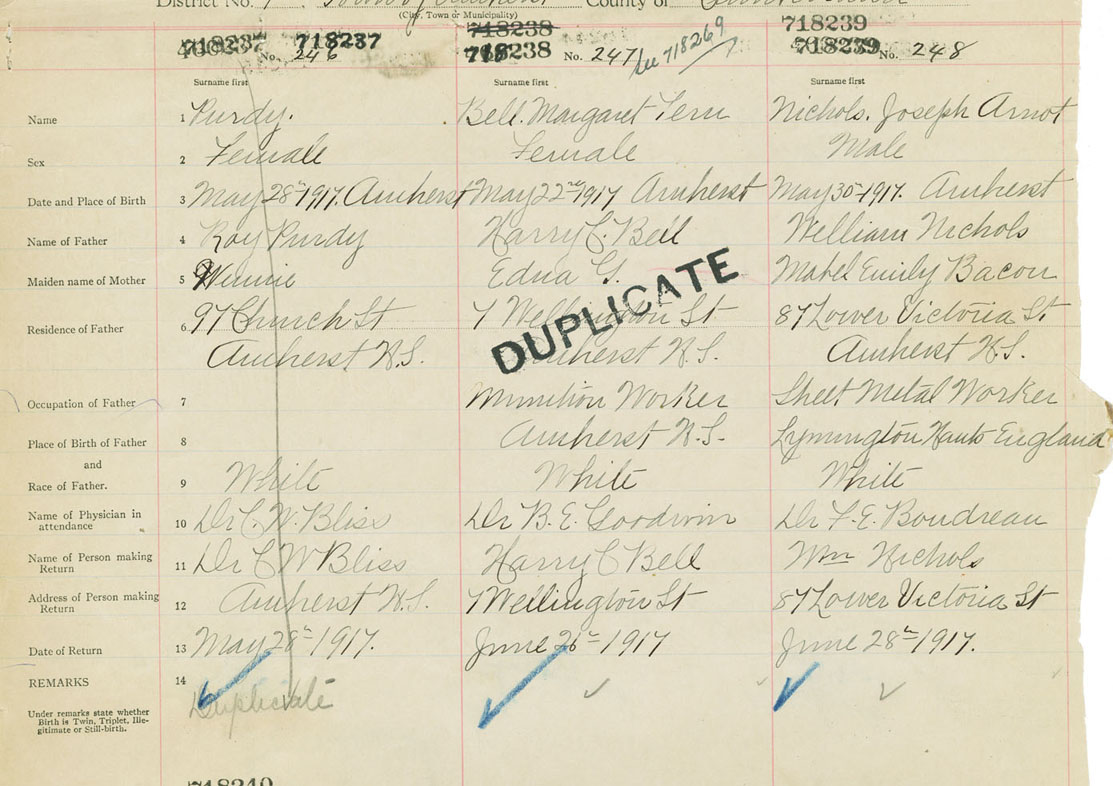 District No. 1 Town of Amherst County of Cumberland
(City, Town or Municipality)
718237 718237 No. 246
718238 718238 No. 247 See 718269
718239 718239 No. 248
Surname first Surname first Surname first
Name 1 Purdy. Bell. Margaret Fern Nichols. Joseph Arnot
Sex 2 Female Female Male
Date and Place of Birth 3 May 28th 1917. Amherst May 22nd 1917 Amherst May 30 1917. Amherst
Name of Father 4 Roy Purdy Harry C. Bell William Nichols
Maiden name of Mother 5 Winnie Edna G. Mabel Emily Bacon
Residence of Father 6 97 Church St 7 Wellington St 87 Lower Victoria St.
Amherst N.S. Amherst N.S. Amherst N.S.
DUPLICATE
Occupation of Father 7 Munition Worker Sheet Metal Worker
Place of Birth of Father 8 Amherst N.S. Lymington Hants England
and
Race of Father. 9 White White White
Name of Physician in attendance 10 Dr C. W. Bliss Dr B. E. Goodwin Dr F. E. Boudreau
Name of Person making Return 11 Dr C W Bliss Harry C Bell Wm Nichols
Address of Person making Return 12 Amherst N.S. 7 Wellington St 87 Lower Victoria St
Date of Return 13 May 28th 1917. June 26th 1917 June 28th 1917.
REMARKS 14 Duplicate
Under remarks state whether
Birth is Twin, Triplet, Ille-
gitimate or Still-birth.
718240